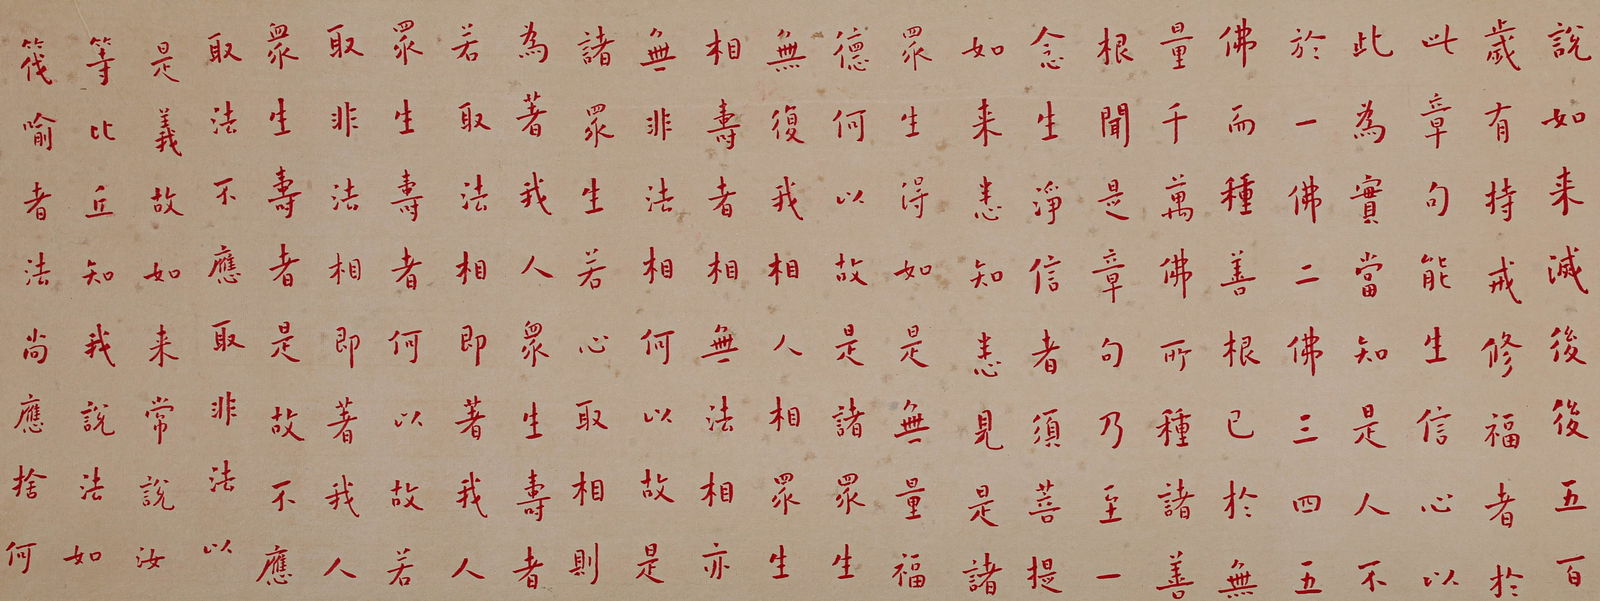 說如来滅後後五百
歲有持戒修福者於
此章句能生信心以
此為實當知是人不
於一佛二佛三四五
佛而種善根已於無
量千萬佛所種諸善
根聞是章句乃至一
念生淨信者須菩提
如来悉知悉見是諸
眾生得如是無量福
德何以故是諸眾生
無復我相人相眾生
相壽者相無法相亦
無非法相何以故是
諸眾生若心取相則
為著我人眾生壽者
若取法相即著我人
眾生壽者何以故若
取非法相即著我人
眾生壽者是故不應
取法不應取非法以
是義故如来常說汝
等比丘知我說法如
筏喻者法尚應捨何